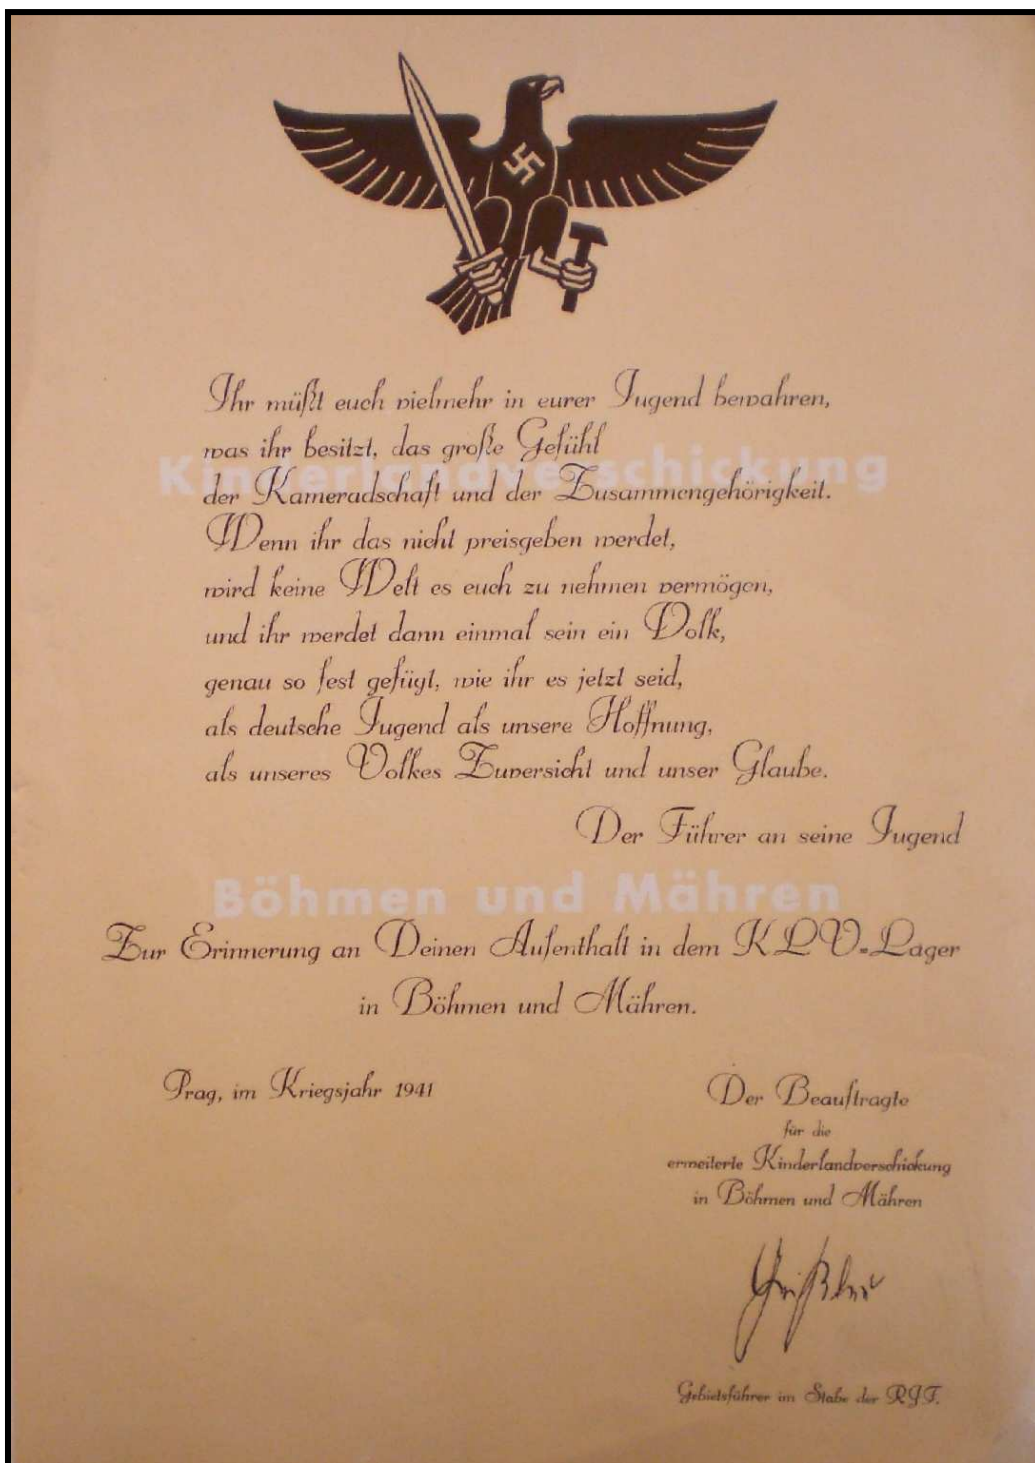 Ihr müßt euch vielmehr in eurer Jugend bewahren,
was ihr besitzt, das große Gefühl
Kinderlandverschickung
der Kameradschaft und der Zusammengehörigkeit.
Wenn ihr das nicht preisgeben werdet,
wird keine Welt es euch zu nehmen vermögen,
und ihr werdet dann einmal sein ein Volk,
genau so fest gefügt, wie ihr es jetzt seid,
als deutsche Jugend als unsere Hoffnung,
als unseres Volkes Zuversicht und unser Glaube.
Der Führer an seine Jugend
Böhmen und Mähren
Zur Erinnerung an Deinen Aufenthalt in dem KLV=Lager
in Böhmen und Mähren.
Prag, im Kriegsjahr 1941
Der Beauftragte
für die
erweiterte Kinderlandverschickung
in Böhmen und Mähren
Gebietsführer im Stabe der RJF.